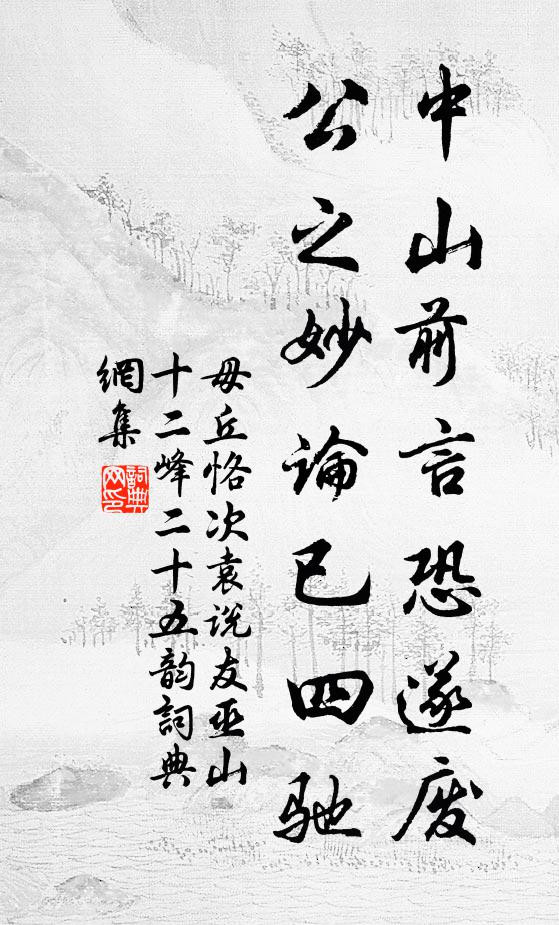 中山前言恐遂废
公之妙論已四馳
毋丘恪次袁说友巫山
十二峰二十五韵詞典
網集
詞典
网印